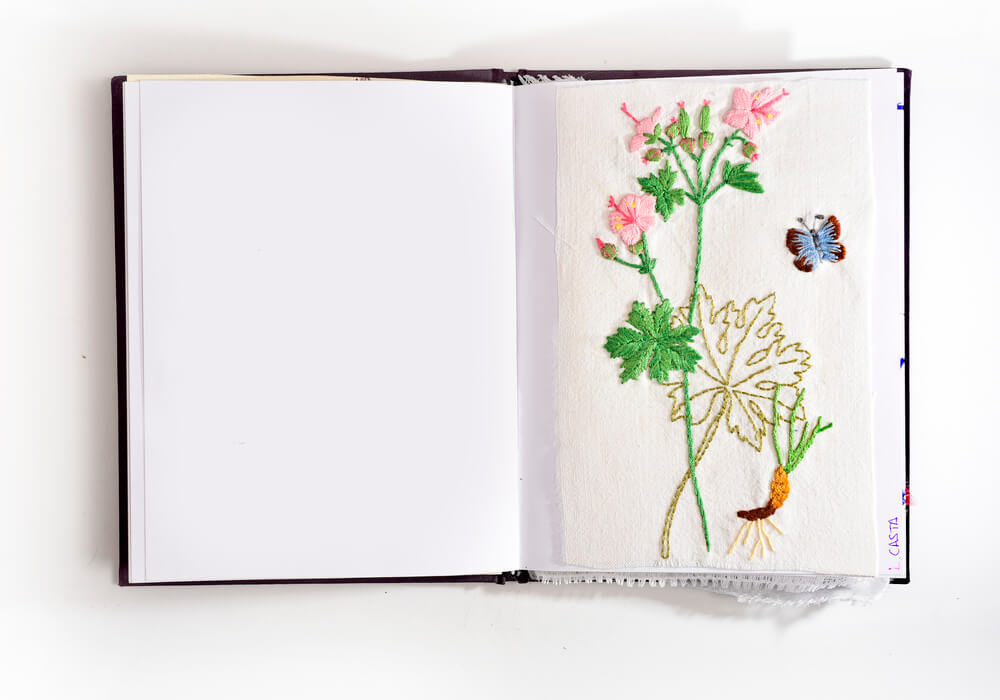 L. CASTA